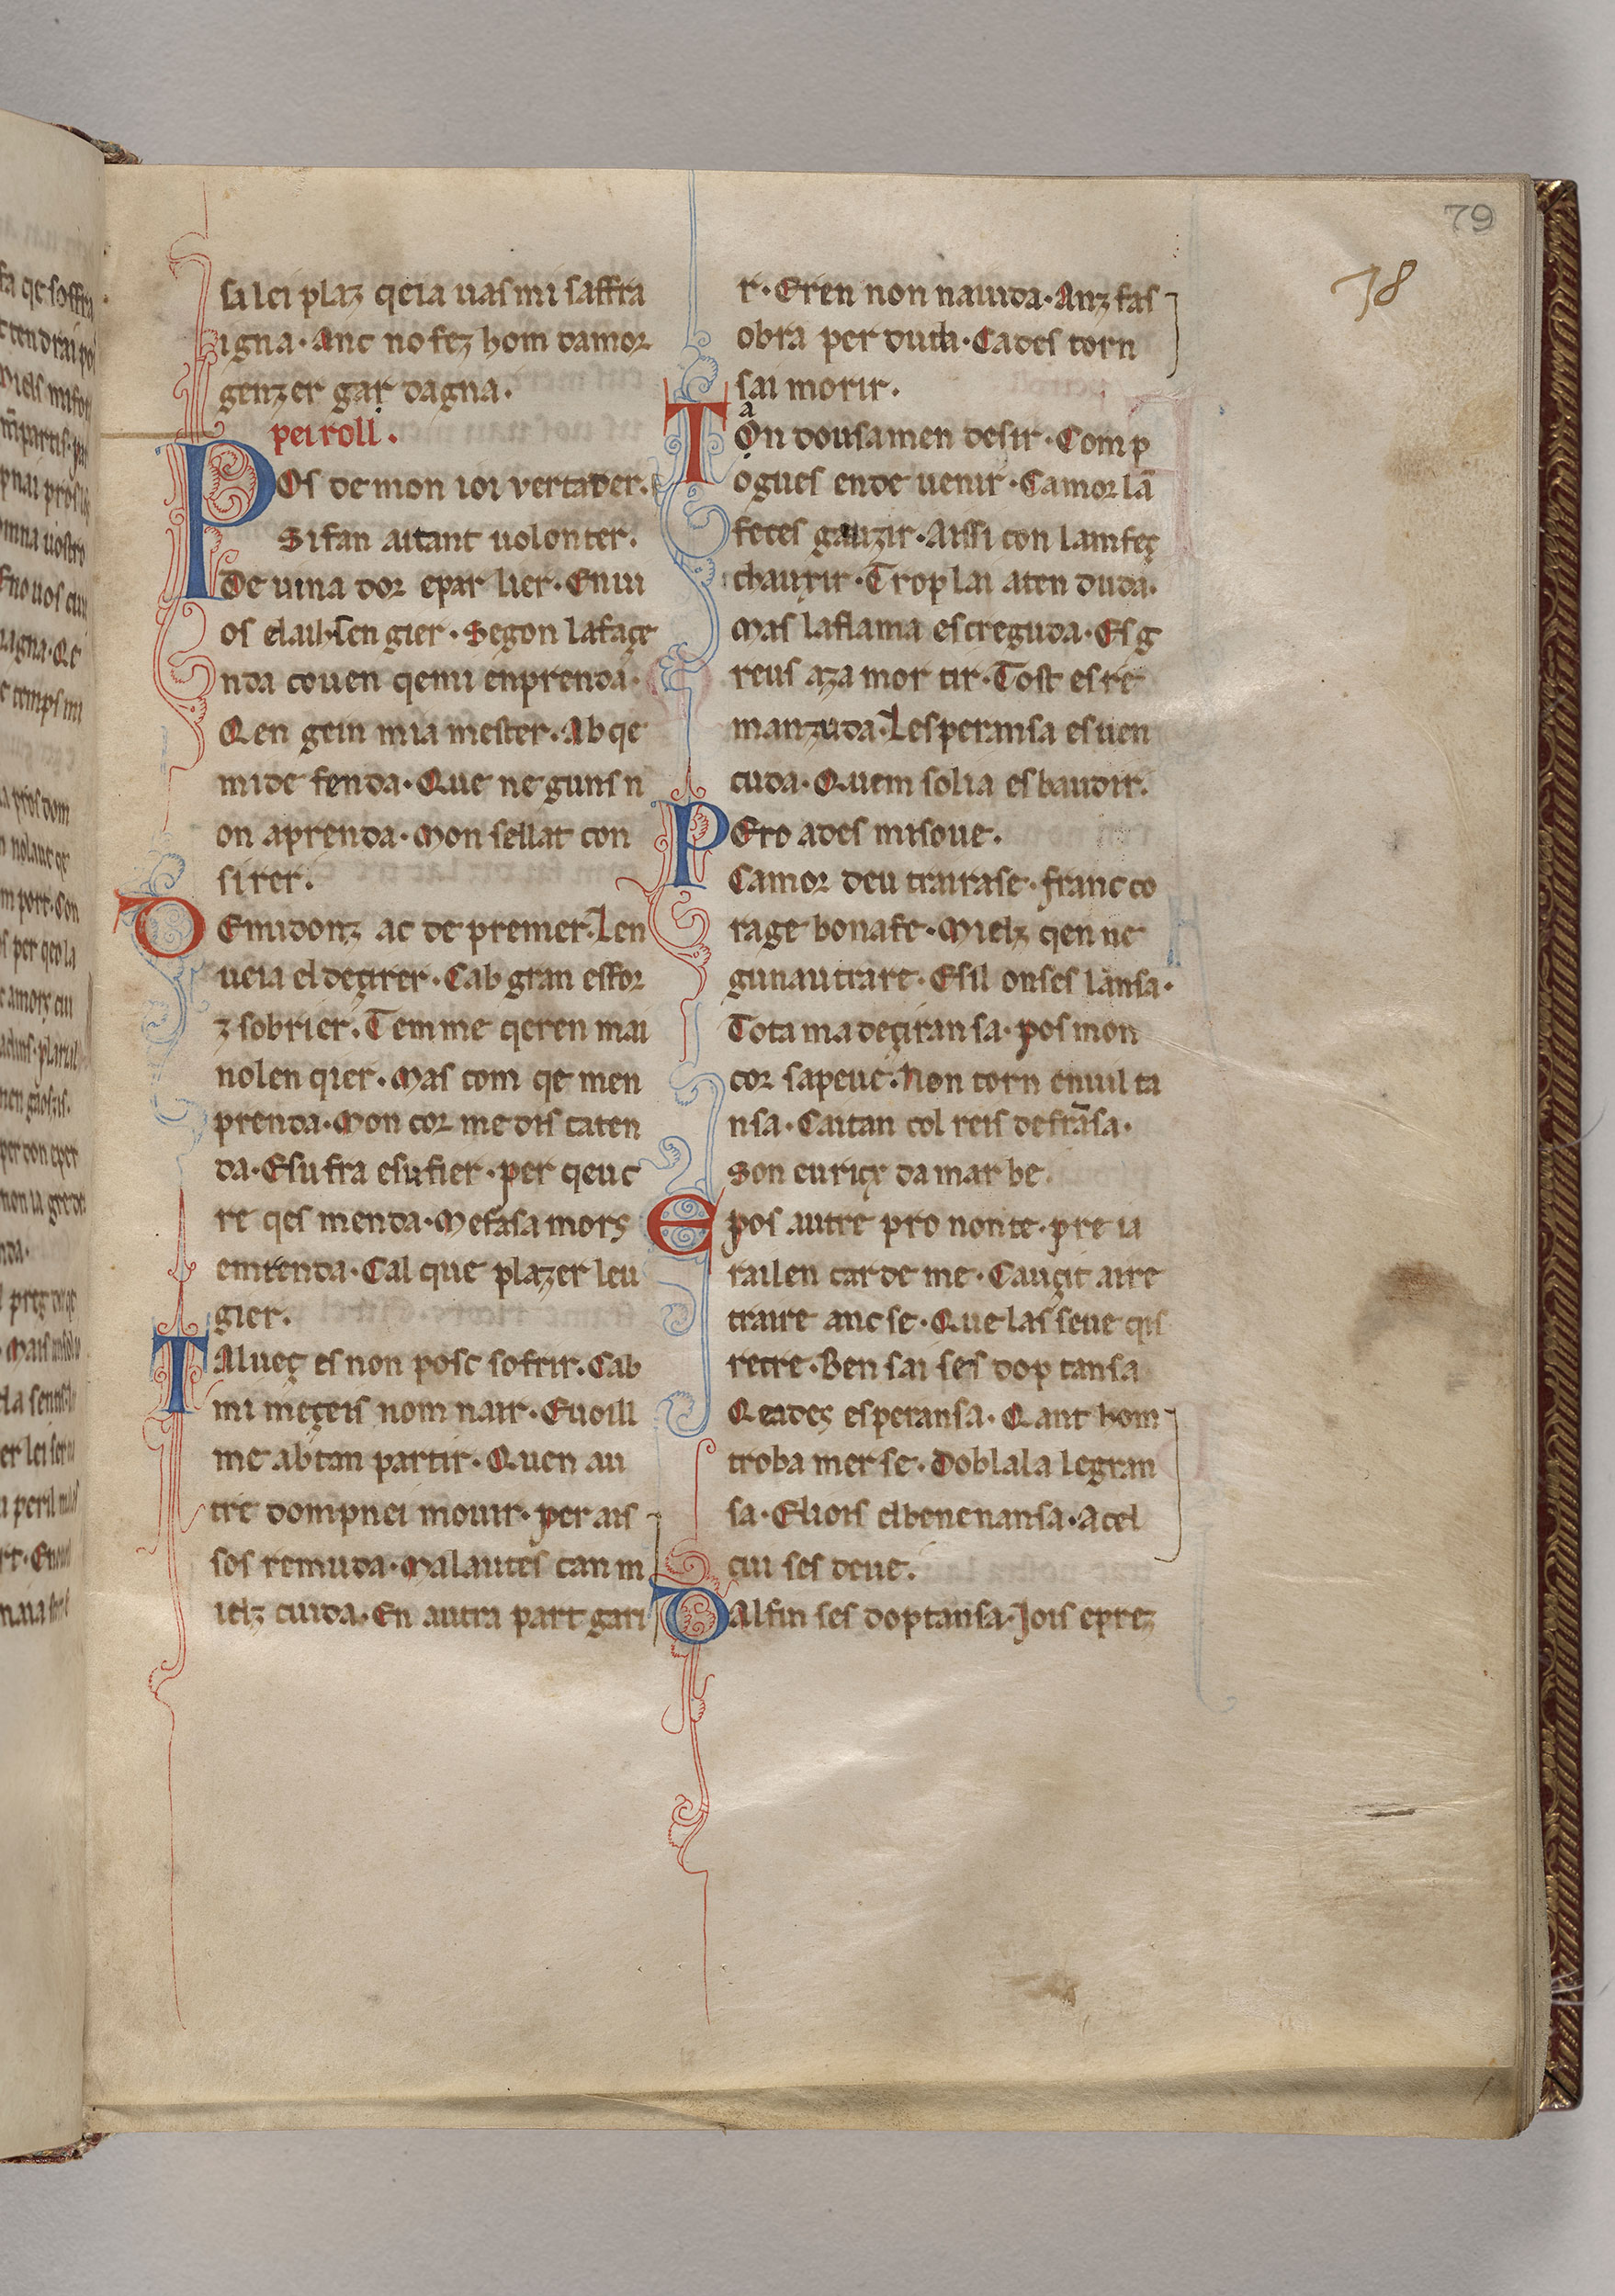 79
78
si lei plaz qeia uas mi saffra
igna · Anc no fez hom damor
genzer gar dagna ·
peiroll ·
POs de mon ioi vertader ·
Si fan aitant uolonter ·
De uina dor epar lier · Eniu
os elauhsen gier · Segon lafaçe
nda couen qemi enprenda ·
Qen gein mia mester · Ab qe
mide fenda · Que ne guns n
on aprenda · Mon sellat con
sirer ·
DEmidonz ac de premer · Len
ueia el deçirer · Cab gran esfor
z sobrier · Tem me qeren mai
nolen qier · Mas com qe men
prenda · Mon cor me dis caten
da · Esufra esufier · per qeu c
re qes menda · Mefasa mors
emrenda · Cal que plazer leu
gier ·
TAlueç es non posc sofrir · Cab
mi meçeis nom nair · Euoill
me abtan partir · Quen au
tre dompnei mouir · per ais
sos remuda · Malautes can m
ielz cuida · En autra part gari
r · Eren non naiuda · Anz fas
obra per duda · Cades torn
sai morir ·
a
TOn dousamen desir · Com p
ogues ende uenir · Camor lā
feces gauzir · Aissi con lam feç
chauxir · Trop lai aten duda ·
Mas laflama escreguda · Es g
reus aza mor tir · Tost es re
manzuda · Lesperansa es uen
cuda · Quem solia es baudir ·
PEro ades misoue ·
Camor deu trairase · franc co
rage bonafe · Mielz qen ne
gun autrare · Esil onses lansa ·
Tota ma deçiransa · pos mon
cor sapeuc · Non torn enuil ta
nsa · Caitan col reis de frāsa ·
Son euriçx da mar be ·
E pos autre pro nonte · pre ia
railen car de me · Cauçit aire
traire anc se · Que las seue qis
retre · Ben sai ses dop tansa
Qeadeç esperansa · Qant hom
troba mer se · Doblala legran
sa · Eliois elbene nansa · A cel
cui ses deue ·
DAlfin ses doptansa · Jois eprez